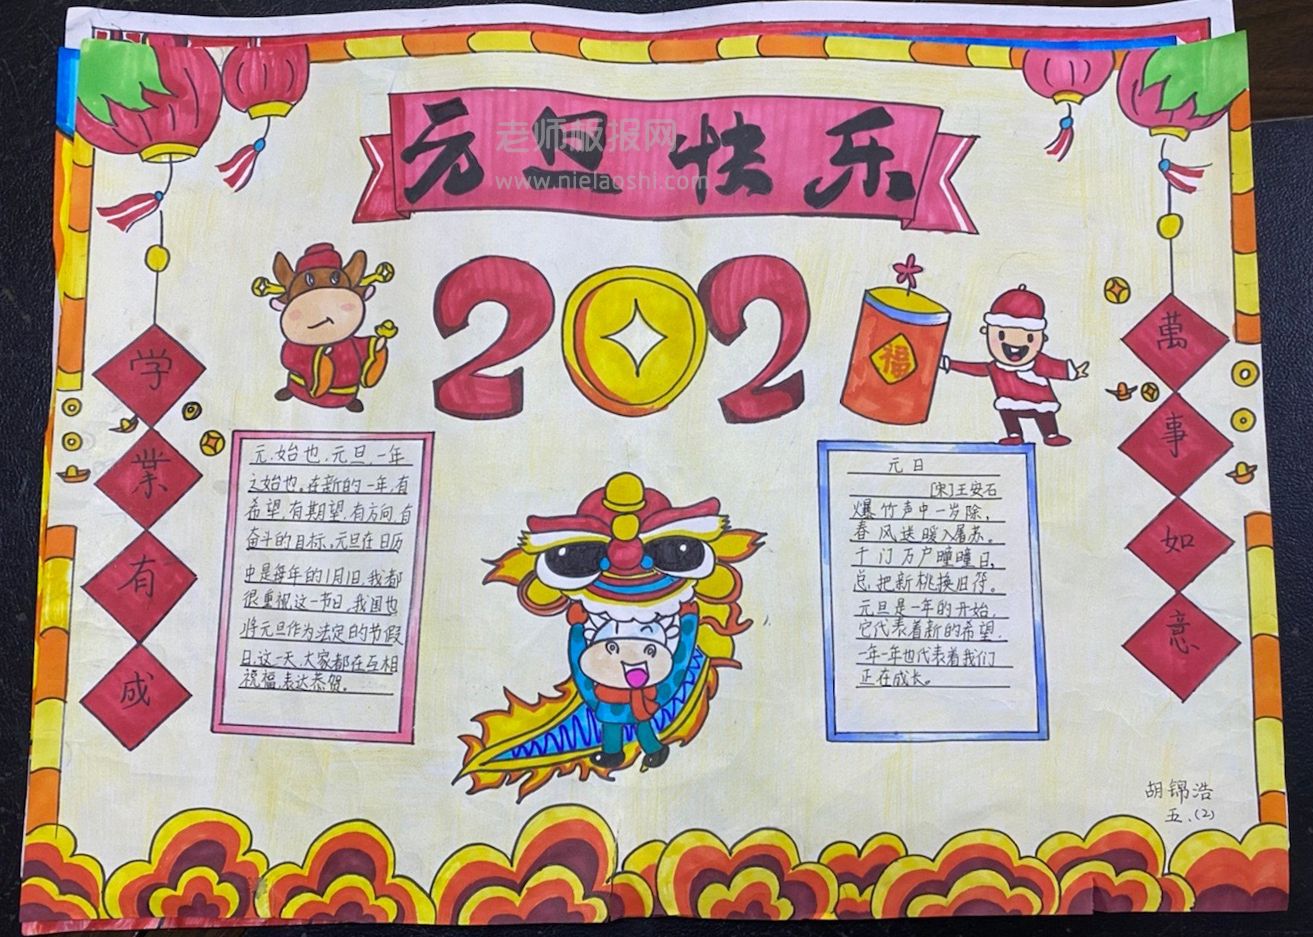 元旦快乐
老师板报网
www.nielaoshi.com
202
福
学
业
有
成
萬
事
如
意
元,始也,元旦,一年
之始也。在新的一年,有
希望,有期望,有方向,有
奋斗的目标。元旦在日历
中是每年的1月1日,我都
很重视这一节日,我国也
将元旦作为法定的节假
日,这一天,大家都在互相
祝福,表达恭贺。
元日
[宋]王安石
爆竹声中一岁除,
春风送暖入屠苏。
千门万户曈曈日,
总把新桃换旧符。
元旦是一年的开始,
它代表着新的希望.
一年一年也代表着我们
正在成长。
胡锦浩
五.(2)